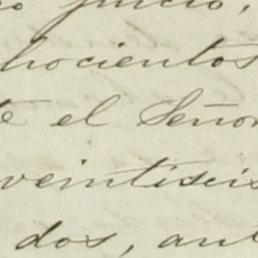 juicio,
hocientos
te el Señor
veintiseis
dos, ant